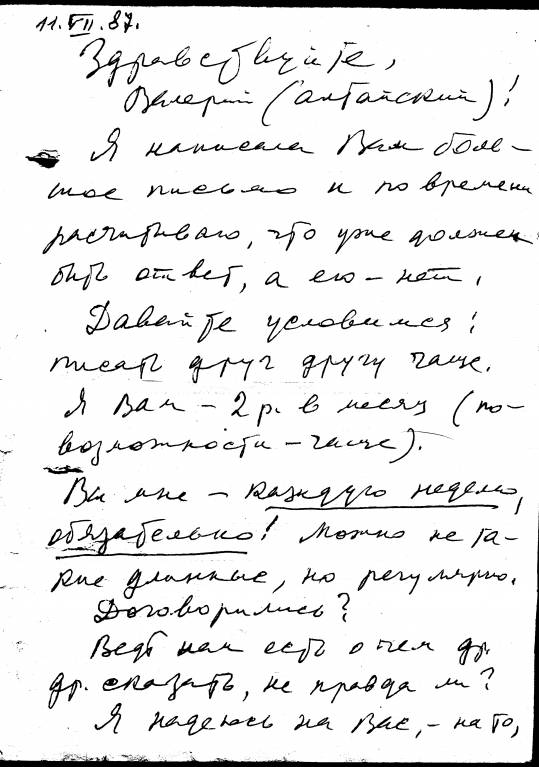 11.VII.87.
Здравствуйте,
Валерий (алтайский)!
Я написала Вам боль-
шое письмо и по времени
расчитываю, что уже должен
быть ответ, а его – нет.
Давайте условимся:
писать друг другу чаще.
Я Вам – 2 р. в месяц (по-
возможности – чаще).
Вы мне – каждую неделю,
обязательно! Можно не та-
кие длинные, но регулярно.
Договорились?
Ведь нам есть о чем др.
др. сказать, не правда ли?
Я надеюсь на Вас, – на то,